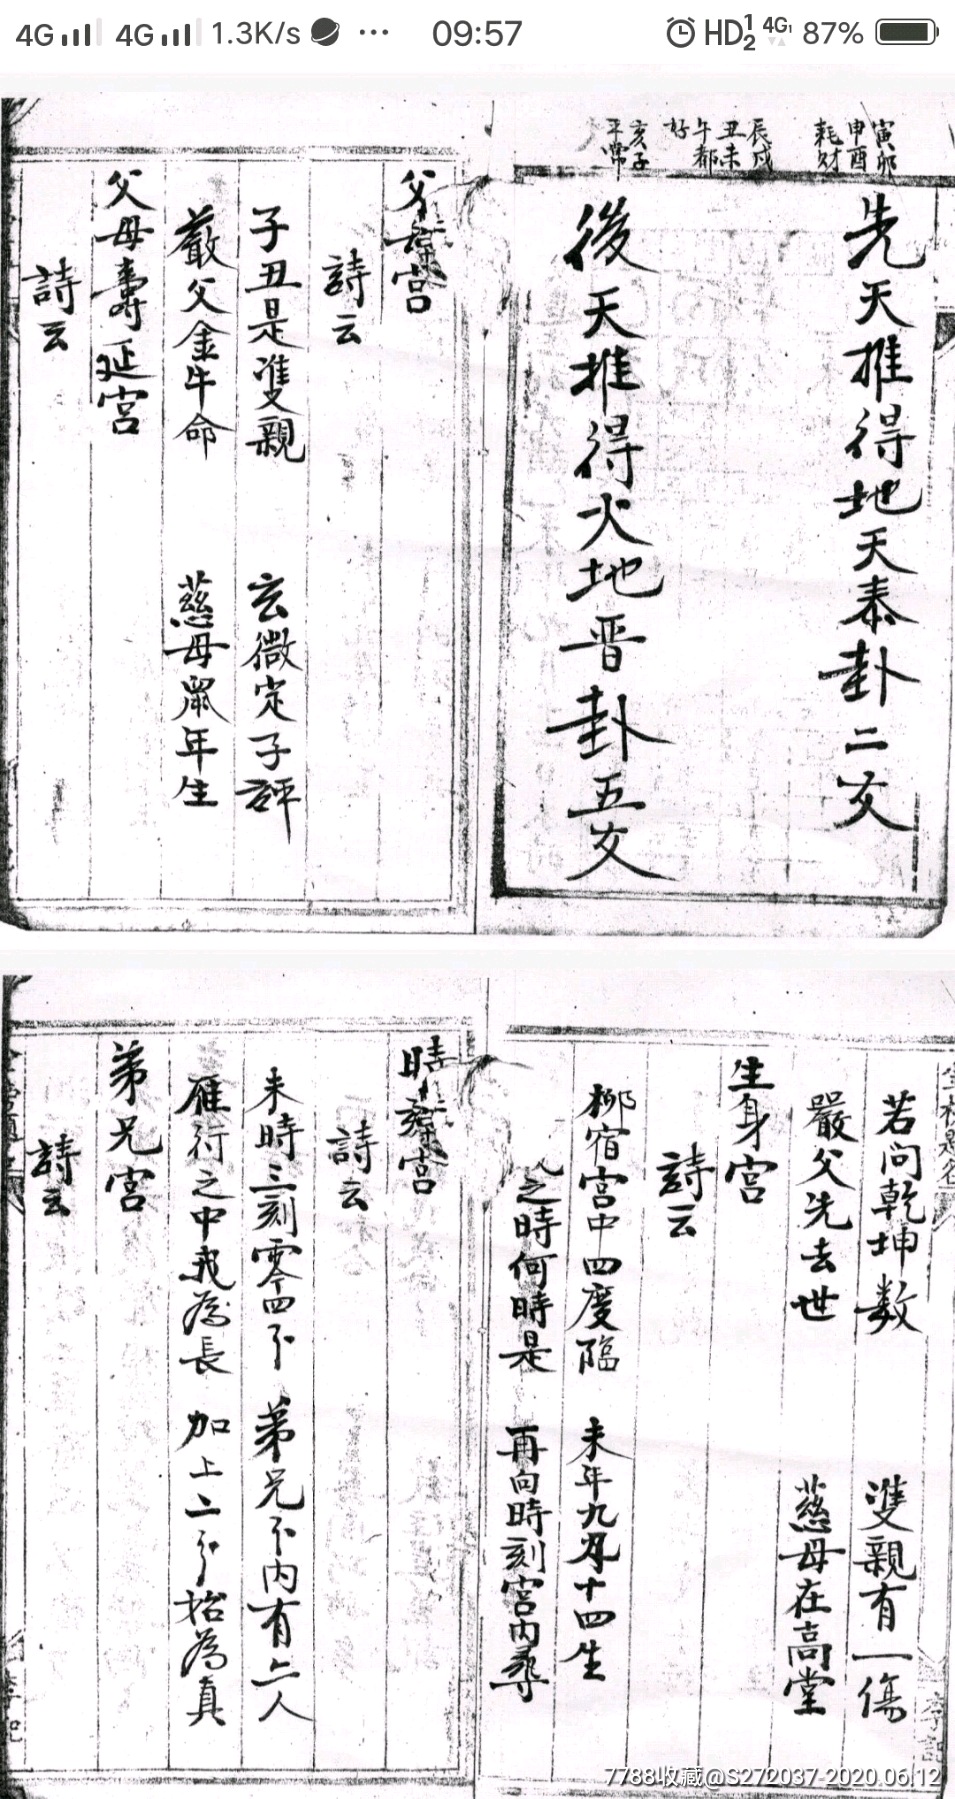 4G 4G 1.3K/s ··· 09:57 HD 1 2 4G 87%
寅卯
申酉
耗財
辰戌
丑未
午都
好
亥子
平常
先天推得地天泰卦二爻
後天推得火地晋卦五爻
父母宮
詩云
子丑是雙親 玄微定子評
嚴父金牛命 慈母鼠年生
父母壽延宮
詩云
若问乾坤数 雙親有一傷
嚴父先去世 慈母在高堂
生身宮
詩云
柳宿宮中四度臨 未年九月十四生
之時何時是 再向時刻宮内尋
時刻宮
詩云
未時三刻零四分 弟兄分内有六人
雁行之中我為長 加上二分拾為真
弟兄宮
詩云
7788收藏@S272037-2020.06.12